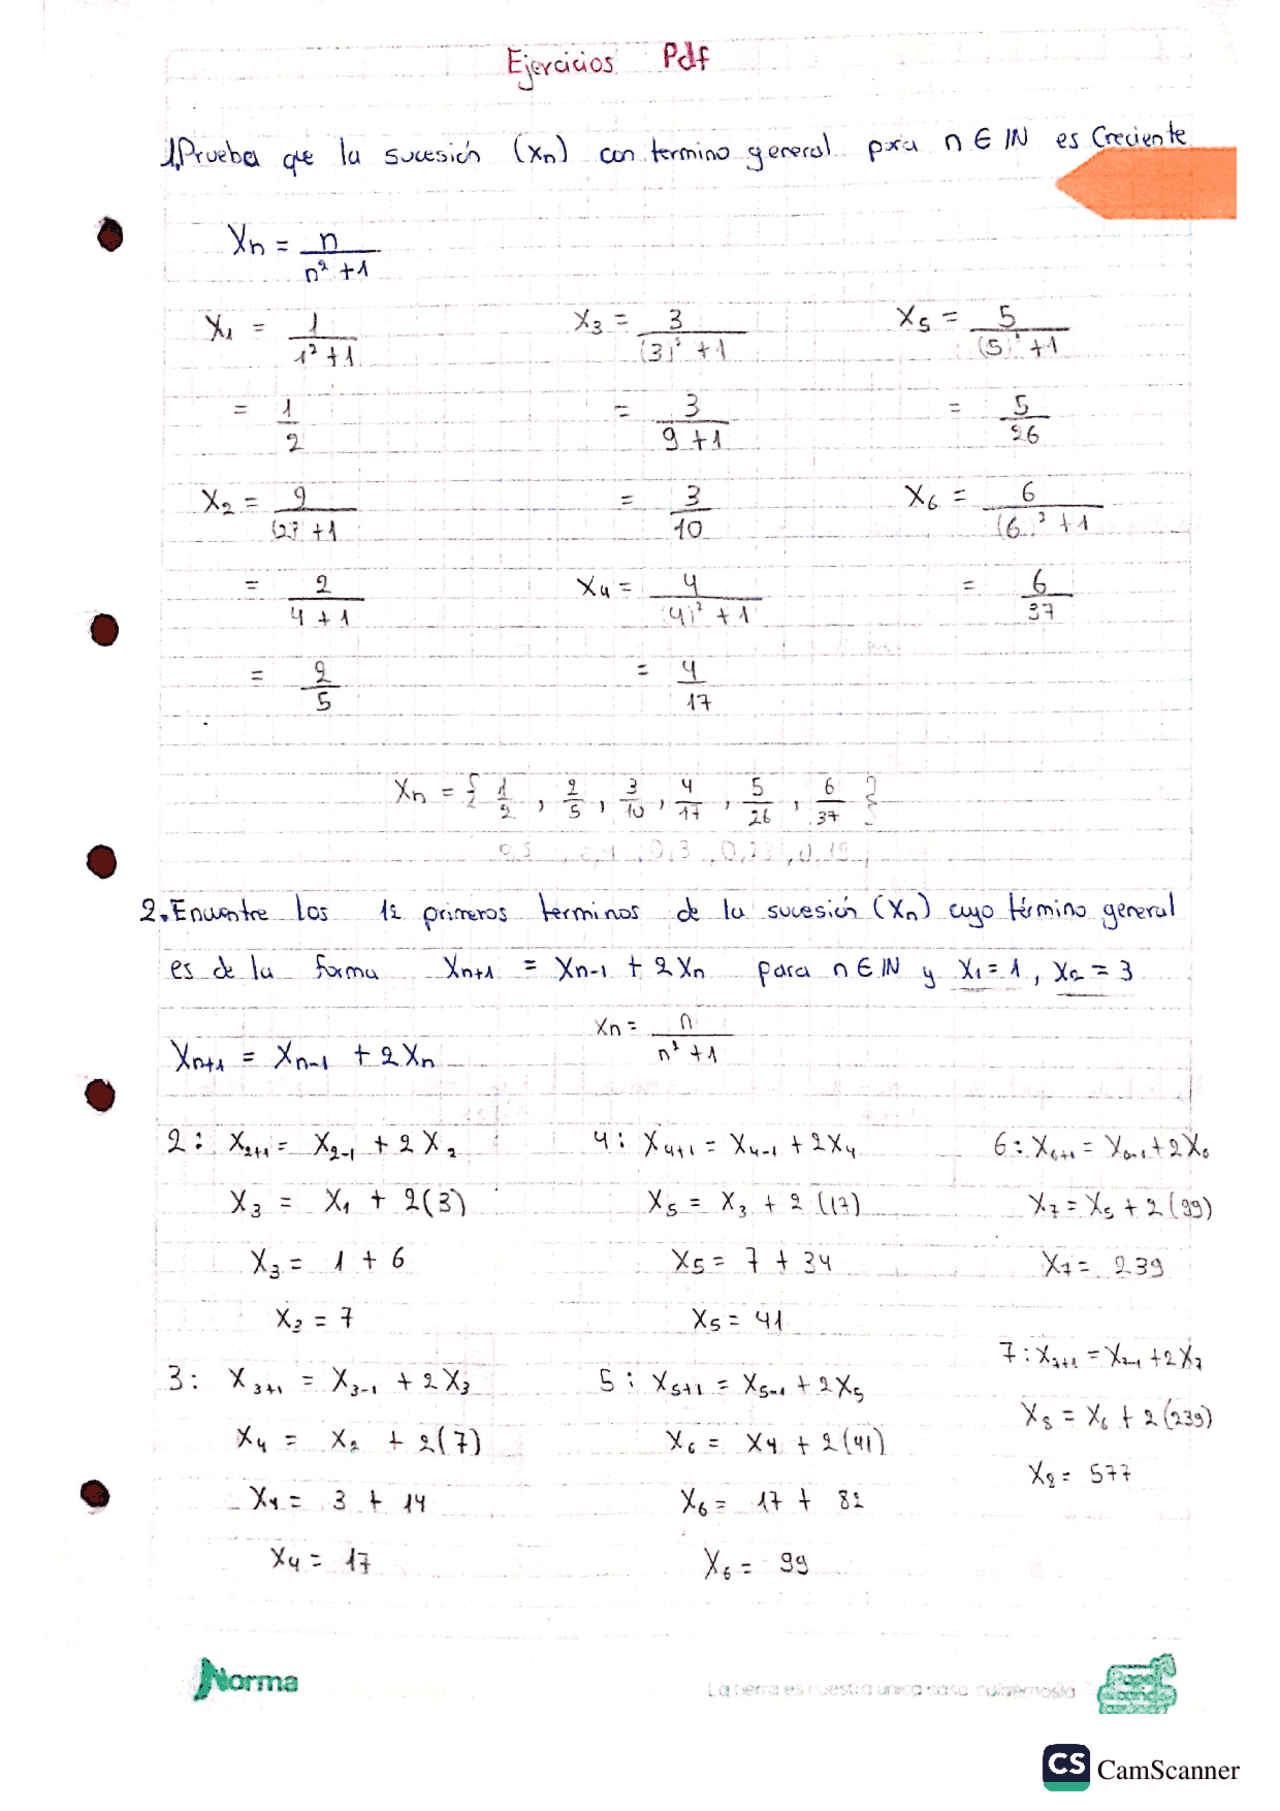 Ejercicios Pdf
1.Prueba que la sucesión (Xn) con termino general para n ∈ IN es Creciente
Xn = n / n² + 1
X1 = 1 / 1² + 1
= 1/2
X2 = 2 / (2)² + 1
= 2 / 4 + 1
= 2/5
X3 = 3 / (3)² + 1
= 3 / 9 + 1
= 3/10
X4 = 4 / (4)² + 1
= 4/17
X5 = 5 / (5)² + 1
= 5/26
X6 = 6 / (6)² + 1
= 6/37
Xn = { 1/2 , 2/5 , 3/10 , 4/17 , 5/26 , 6/37 }
0,5 , 0,4 , 0,3 , 0,23 , 0,19 ,
2. Encuentre los 12 primeros terminos de la sucesión (Xn) cuyo término general
es de la forma Xn+1 = Xn-1 + 2Xn para n ∈ IN y X1 = 1 , X2 = 3
Xn+1 = Xn-1 + 2Xn
Xn = n / n² + 1
2 : X2+1 = X2-1 + 2X2
X3 = X1 + 2(3)
X3 = 1 + 6
X3 = 7
3 : X3+1 = X3-1 + 2X3
X4 = X2 + 2(7)
X4 = 3 + 14
X4 = 17
4 : X4+1 = X4-1 + 2X4
X5 = X3 + 2(17)
X5 = 7 + 34
X5 = 41
5 : X5+1 = X5-1 + 2X5
X6 = X4 + 2(41)
X6 = 17 + 82
X6 = 99
6 : X6+1 = X6-1 + 2X6
X7 = X5 + 2(99)
X7 = 239
7 : X7+1 = X7-1 + 2X7
X8 = X6 + 2(239)
X8 = 577
Norma
La tierra es nuestra única casa
CS CamScanner